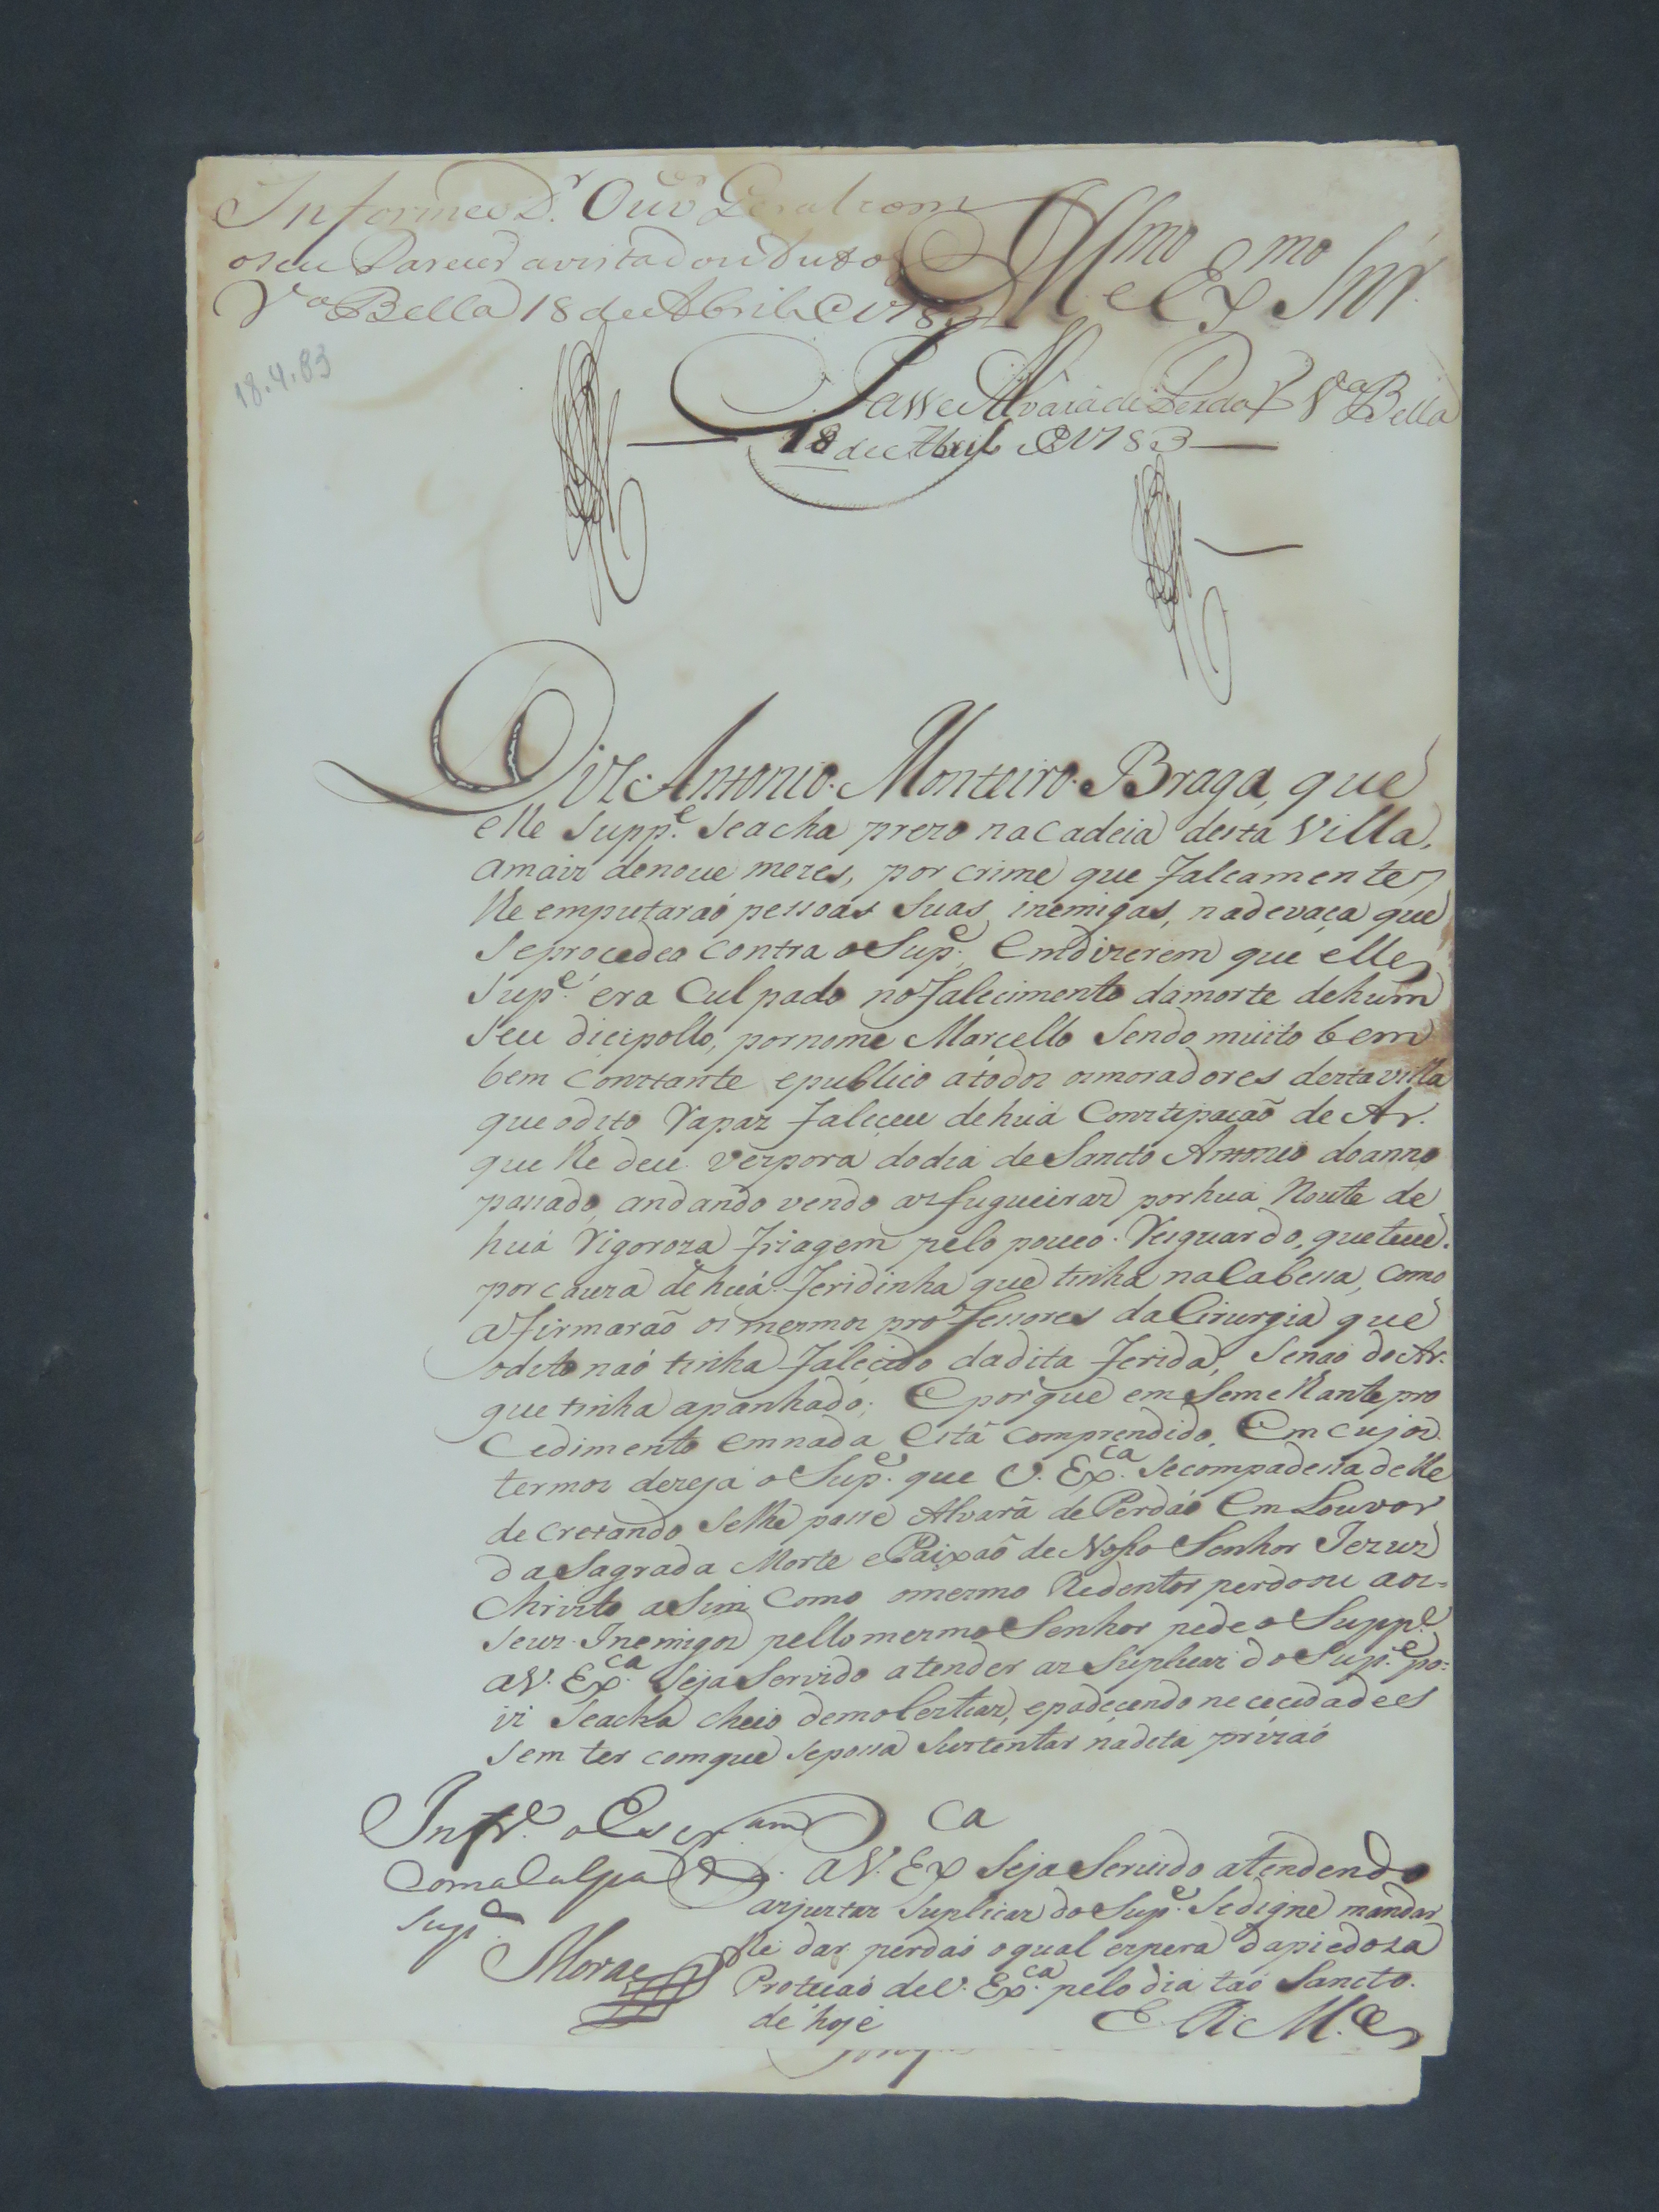 Informe o D.r Ouv.or Geral com
o seu Parecer avista do induto
V.a Bella 18 de Abril de 1783
Ill.mo e Ex.mo Snr.
18.4.83
Passe Alvará de Perdaõ V.a Bella
18 de Abril de 1783
Diz Antonio Monteiro Braga, que
elle Supp.e se acha prezo na Cadeia desta Villa,
amais denoue mezes, por crime que falcamente
lhe emputaraó pessoas Suas inemigas, nadevaça que
Seprocedeo contra o Sup.e Em dizerem que elle
Sup.e era Culpado no falecimento damorte dehum
Seu dicipollo, por nome Marcello Sendo muito bem
bem Constante epublico atodos osmoradores desta villa
que odito Rapaz faleceu de huá Constipaçaõ de Ar.
que lhe deu vespora dodia de Sancto Antonio doanno
passado, andando vendo as fugueiras por huá Noute de
huá Vigoroza friagem pelo pouco Resguardo, queteue.
por cauza de huá feridinha que tinha na Cabessa, como
afirmaraõ os mesmos professores da Cirurgia que
odito naó tinha falecido dadita ferida, Senaó do Ar.
que tinha apanhado; E porque em Semelhante pro
Cedimento emnada Está comprendido, Em cujos
termos dezeja o Sup.e que V. Ex.ca Se compadessa delle
decretando Selhe passe Alvará de Perdaó Em Louvor
da Sagrada Morte e Paixaõ de Nosso Senhor Jezus
Christo asim Como omesmo Redentor perdoou aos
seus Inemigos pello mesmo Senhor pede o Supp.e
aV. Ex.ca Seja Servido atender as Suplicas do Sup.e po=
is Seacha cheio demolestias, epadecendo necicidadees
Sem ter comque Sepossa Sustentar nadita prizaó
Inf.e o Escr.am
com a Culpa do
Sup.e
Moraes
P. aV. Ex.ca Seja Seruido atendendo
asjustas Suplicas do Sup.e Sedigne mandar
lhe dar perdaó oqual espera dapiedoza
Proteçaó de V. Ex.ca pelo dia taó Sancto.
de hoje
E. R. M.ce